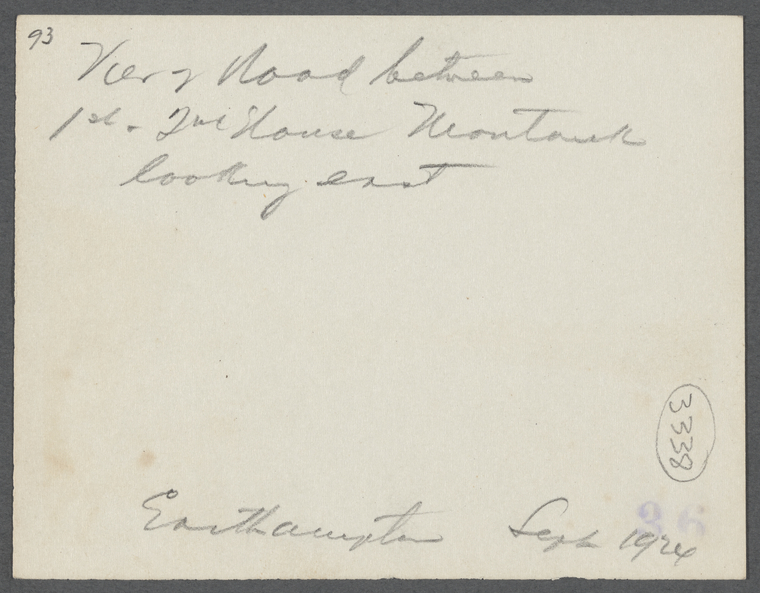 93
View of Road between
1st. 2nd House Montauk
looking east
3338
Easthampton Sept 1924
36